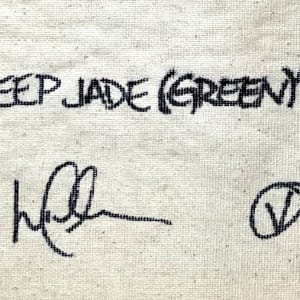 EEP JADE (GREEN)
V